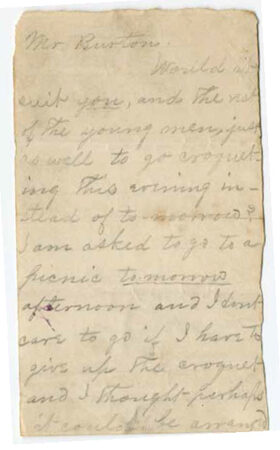 Mr. Burton.
Would it
suit you, and the rest
of the young men, just
as well to go croquet-
ing this evening in-
stead of to-morrow?
I am asked to go to a
picnic to-morrow
afternoon and I dont
care to go if I have to
give up the croquet
and I thought perhaps
it could be arranged